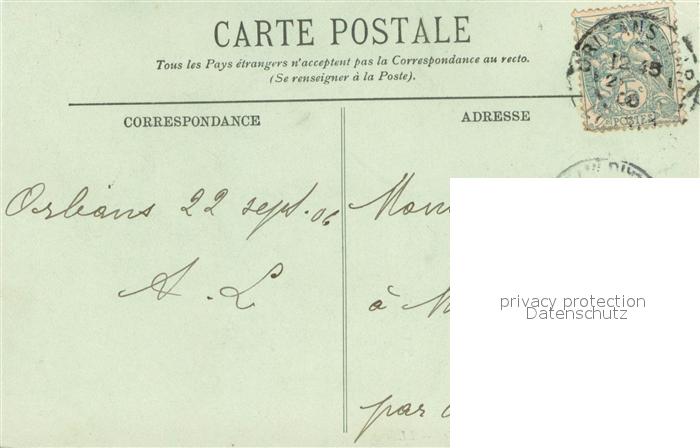 CARTE POSTALE
Tous les Pays étrangers n'acceptent pas la Correspondance au recto.
(Se renseigner à la Poste).
CORRESPONDANCE
ADRESSE
ORLEANS
12 15
Orléans 22 sept. 06
A. L
à
par
privacy protection
Datenschutz